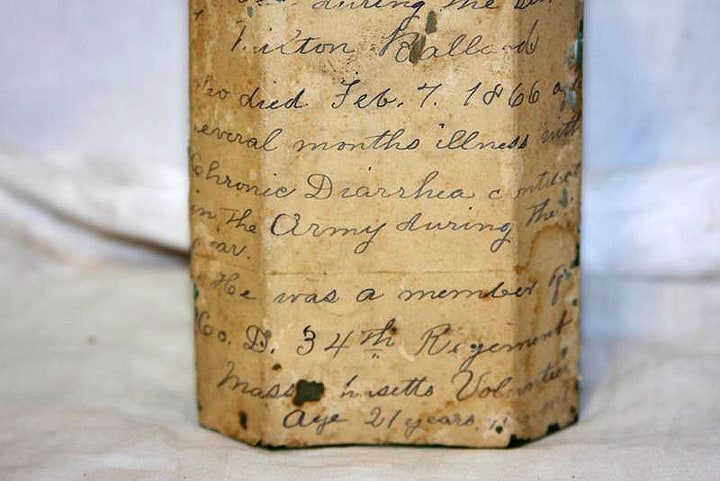 during the
Milton Ballard
who died Feb. 7. 1866
several months illness with
Chronic Diarrhea contract
in the Army during the
War.
He was a member of
Co. D. 34th Regiment
Mass husetts Volunteer
Age 21 years